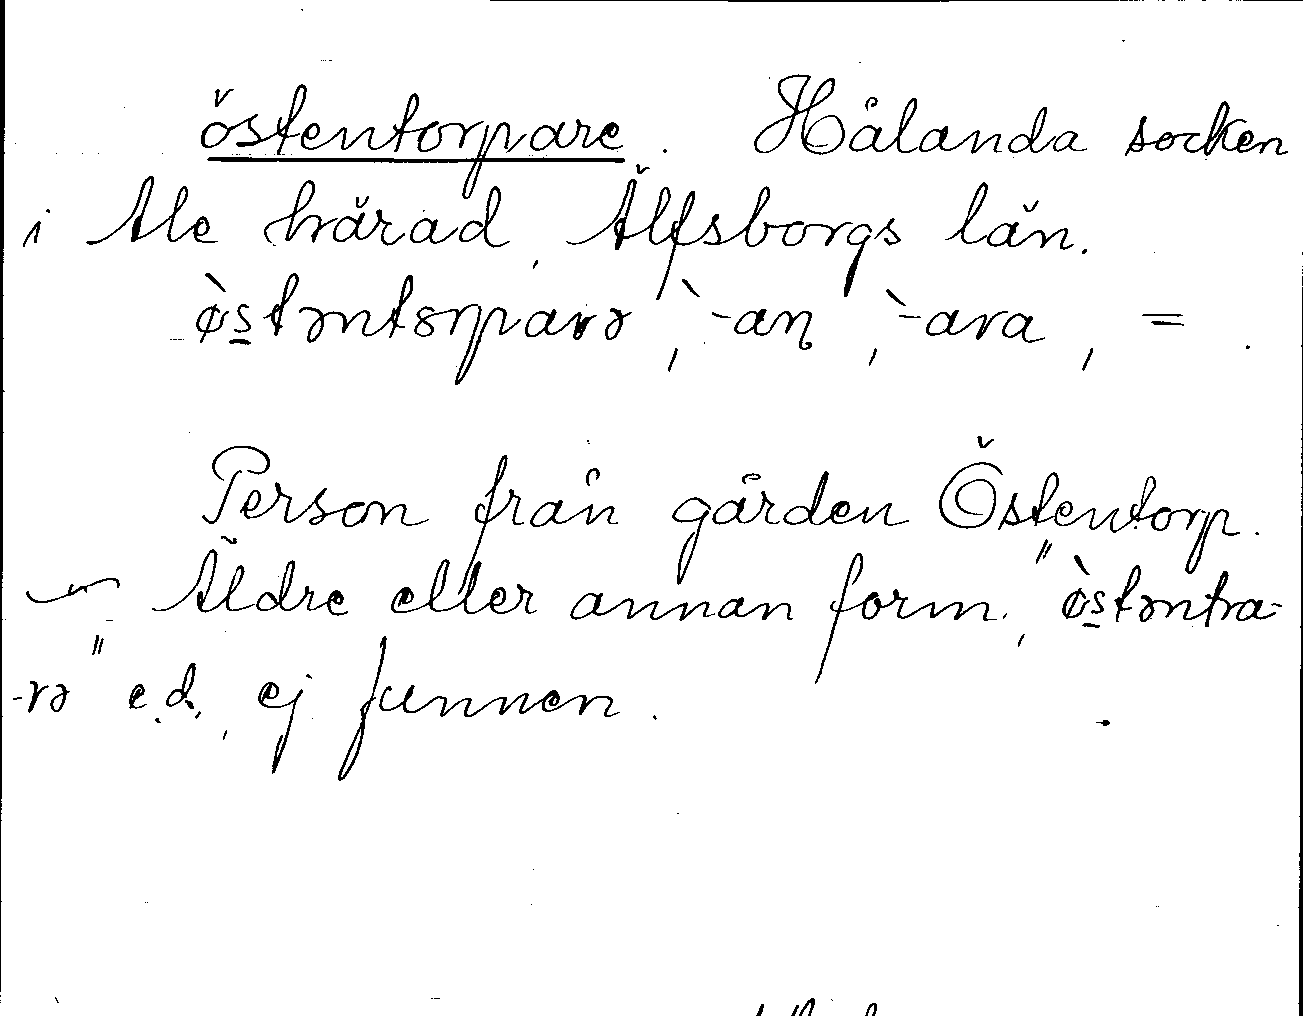 östentorpare. Hålanda socken
i Ale härad, Älfsborgs län.
ø̀s̲təntɔrparə, `-aɳ, `-ara, =.
Person från gården Östentorp.
— Äldre eller annan form, "ø̀s̲təntra-
-rə" e.d., ej funnen.